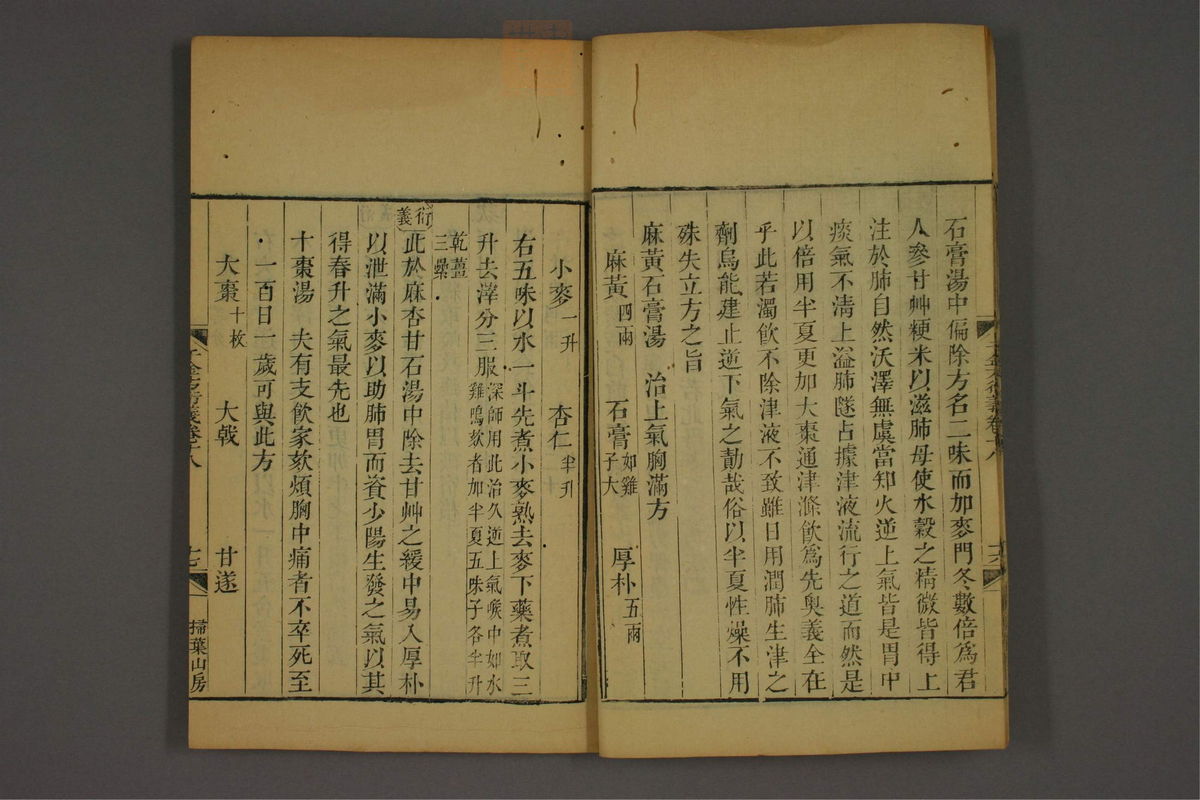 石膏湯中偏除方名二味而加麥門冬數倍爲君
人參甘艸粳米以滋肺母使水穀之精微皆得上
注於肺自然沃澤無虞當知火逆上氣皆是胃中
痰氣不淸上溢肺隧占據津液流行之道而然是
以倍用半夏更加大棗通津滌飲爲先奧義全在
乎此若濁飲不除津液不致雖日用潤肺生津之
劑烏能建止逆下氣之勣哉俗以半夏性燥不用
殊失立方之旨
麻黃石膏湯　治上氣胸滿方
麻黃四兩　石膏如雞子大　厚朴五兩
小麥一升　杏仁半升
右五味以水一斗先煮小麥熟去麥下藥煮取三
升去滓分三服深師用此治久逆上氣喉中如水雞鳴欬者加半夏五味子各半升
乾薑三㽃
衍義此於麻杏甘石湯中除去甘艸之緩中易入厚朴
以泄滿小麥以助肺胃而資少陽生發之氣以其
得春升之氣最先也
十棗湯　夫有支飲家欬煩胸中痛者不卒死至
一百日一歲可與此方
大棗十枚　大戟　甘遂
千金方衍義卷十八　七　掃葉山房